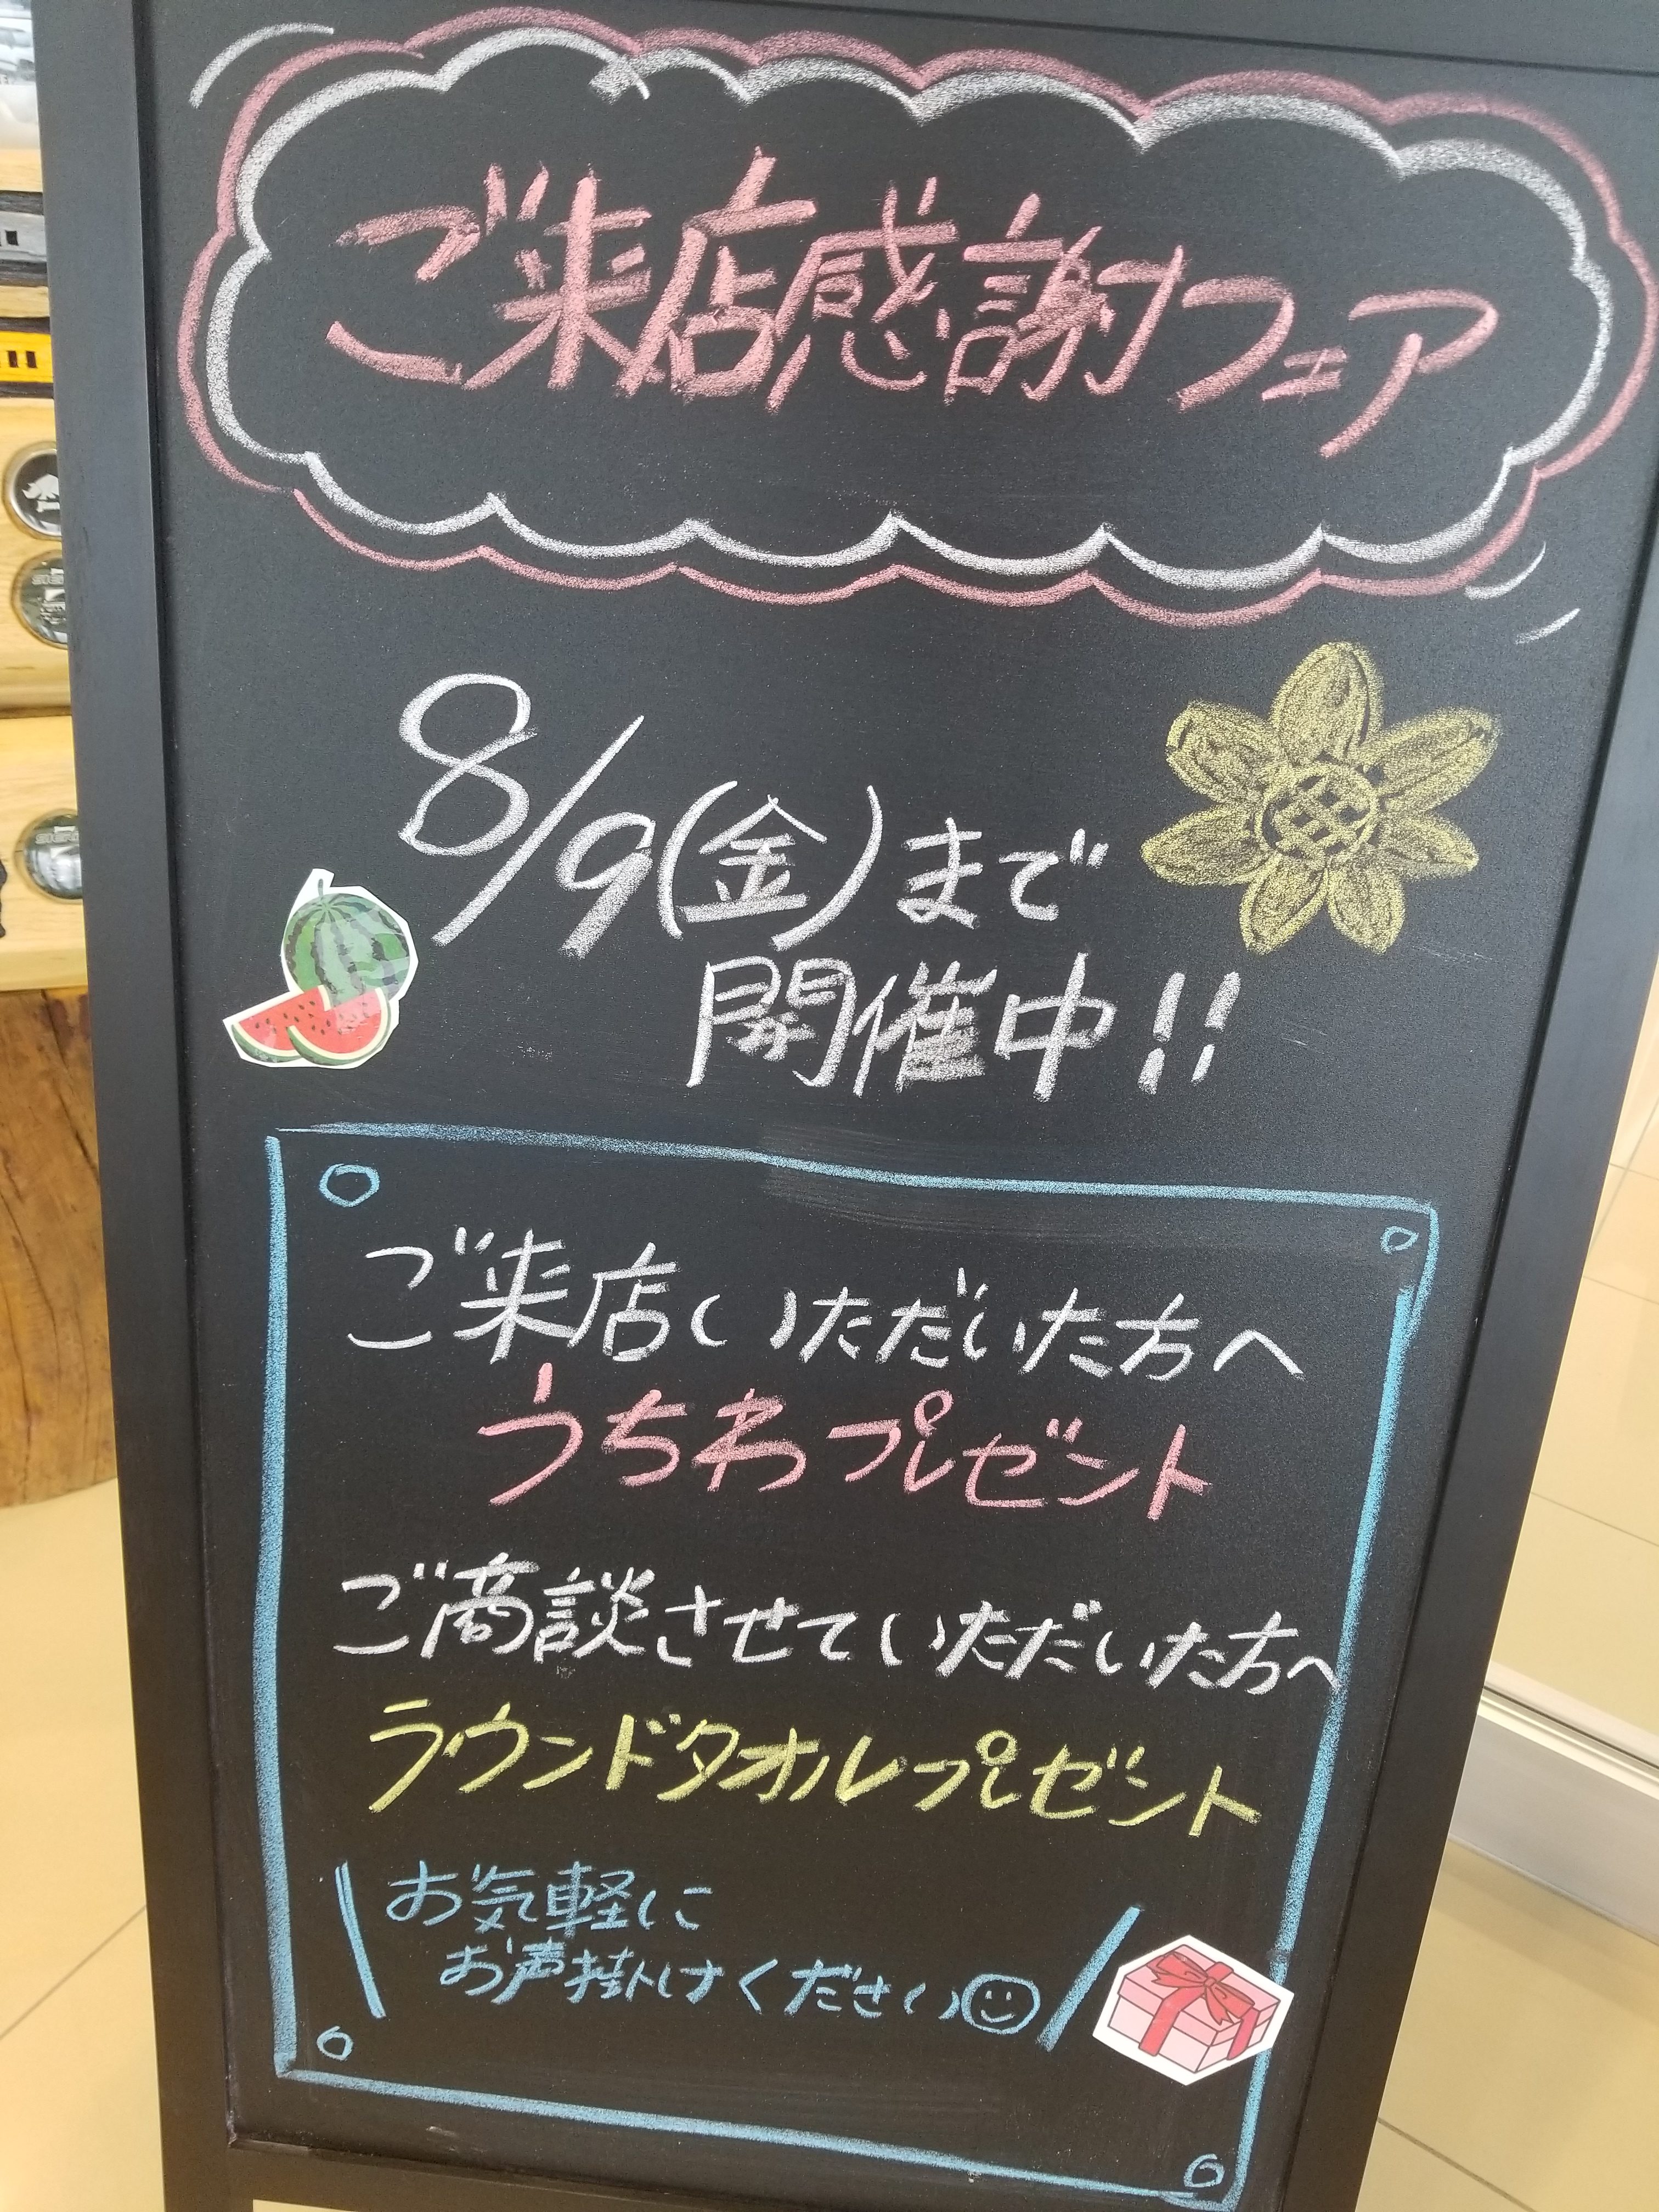 ご来店感謝フェア
8/9(金)まで
開催中!!
ご来店いただいた方へ
うちわプレゼント
ご商談させていただいた方へ
ラウンドタオルプレゼント
お気軽に
お声掛けください